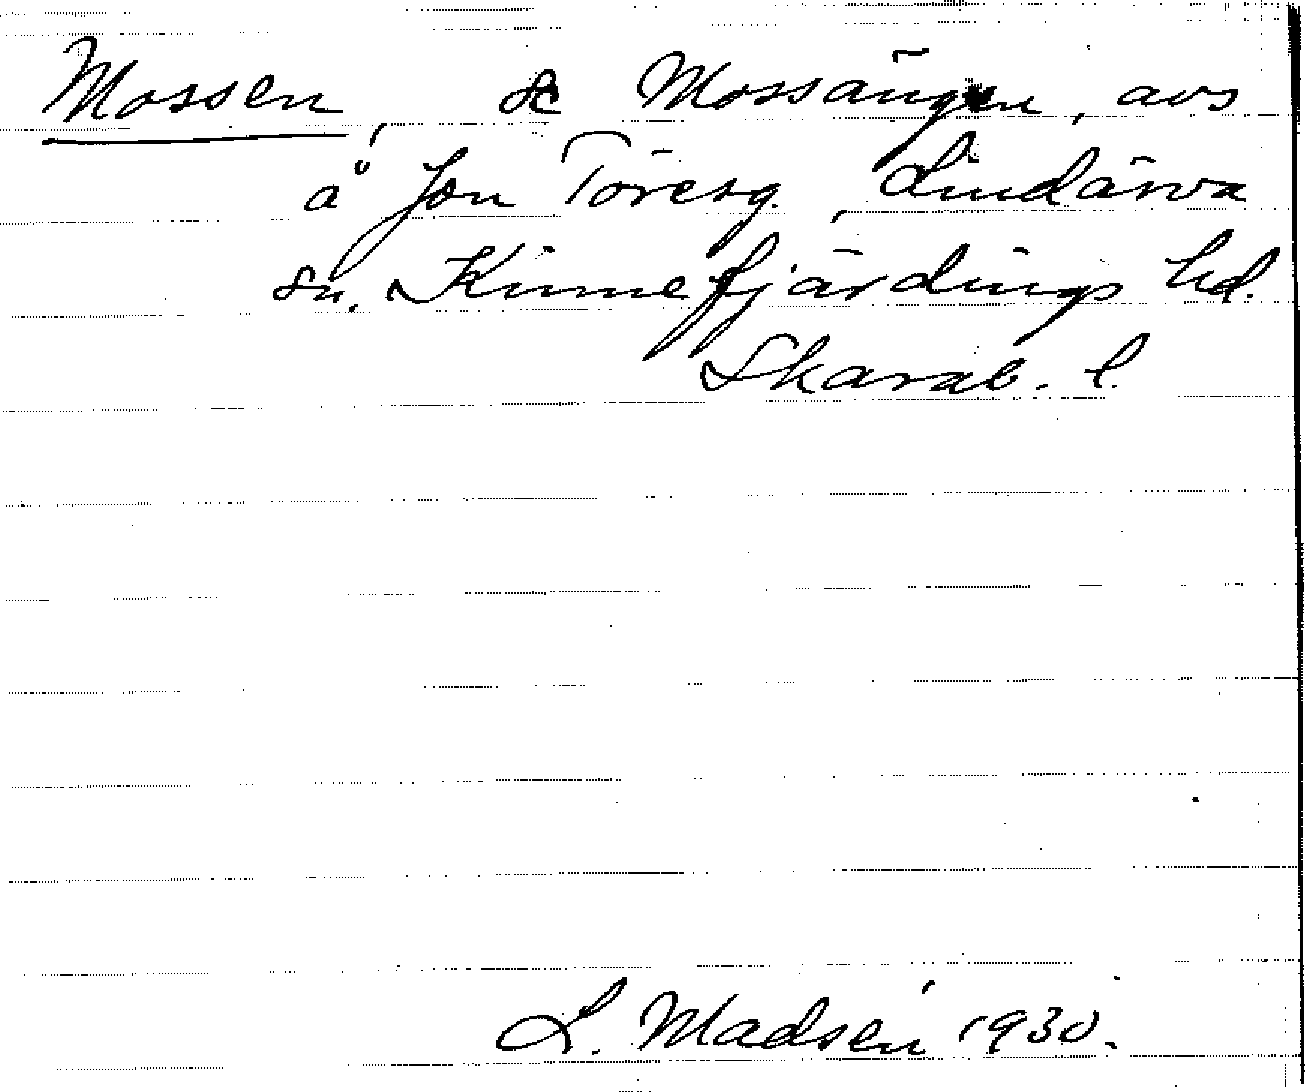 Mossen, se Mossängen, avs
å Jon Töresg., Lindärva
sn. Kinnefjärdings hd.
Skarab. l.
L. Madsén 1930.